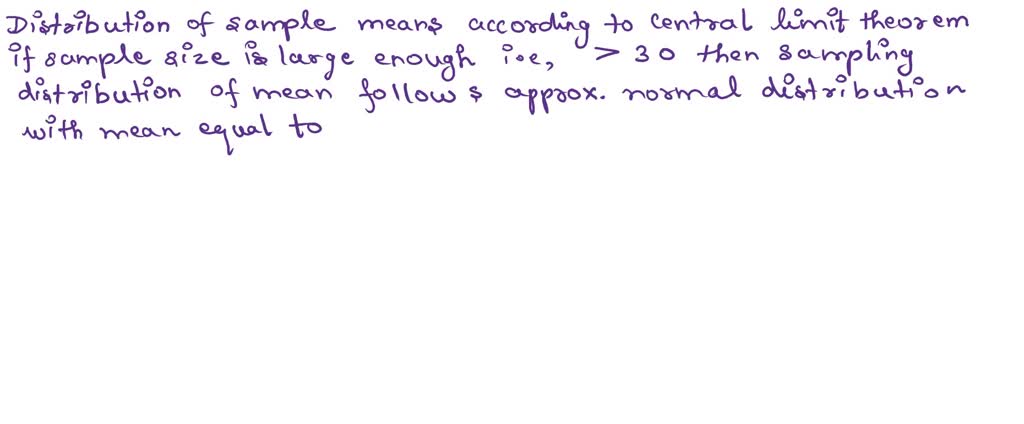 Distribution of sample means according to central limit theorem
if sample size is large enough i.e, > 30 then sampling
distribution of mean follows approx. normal distribution
with mean equal to